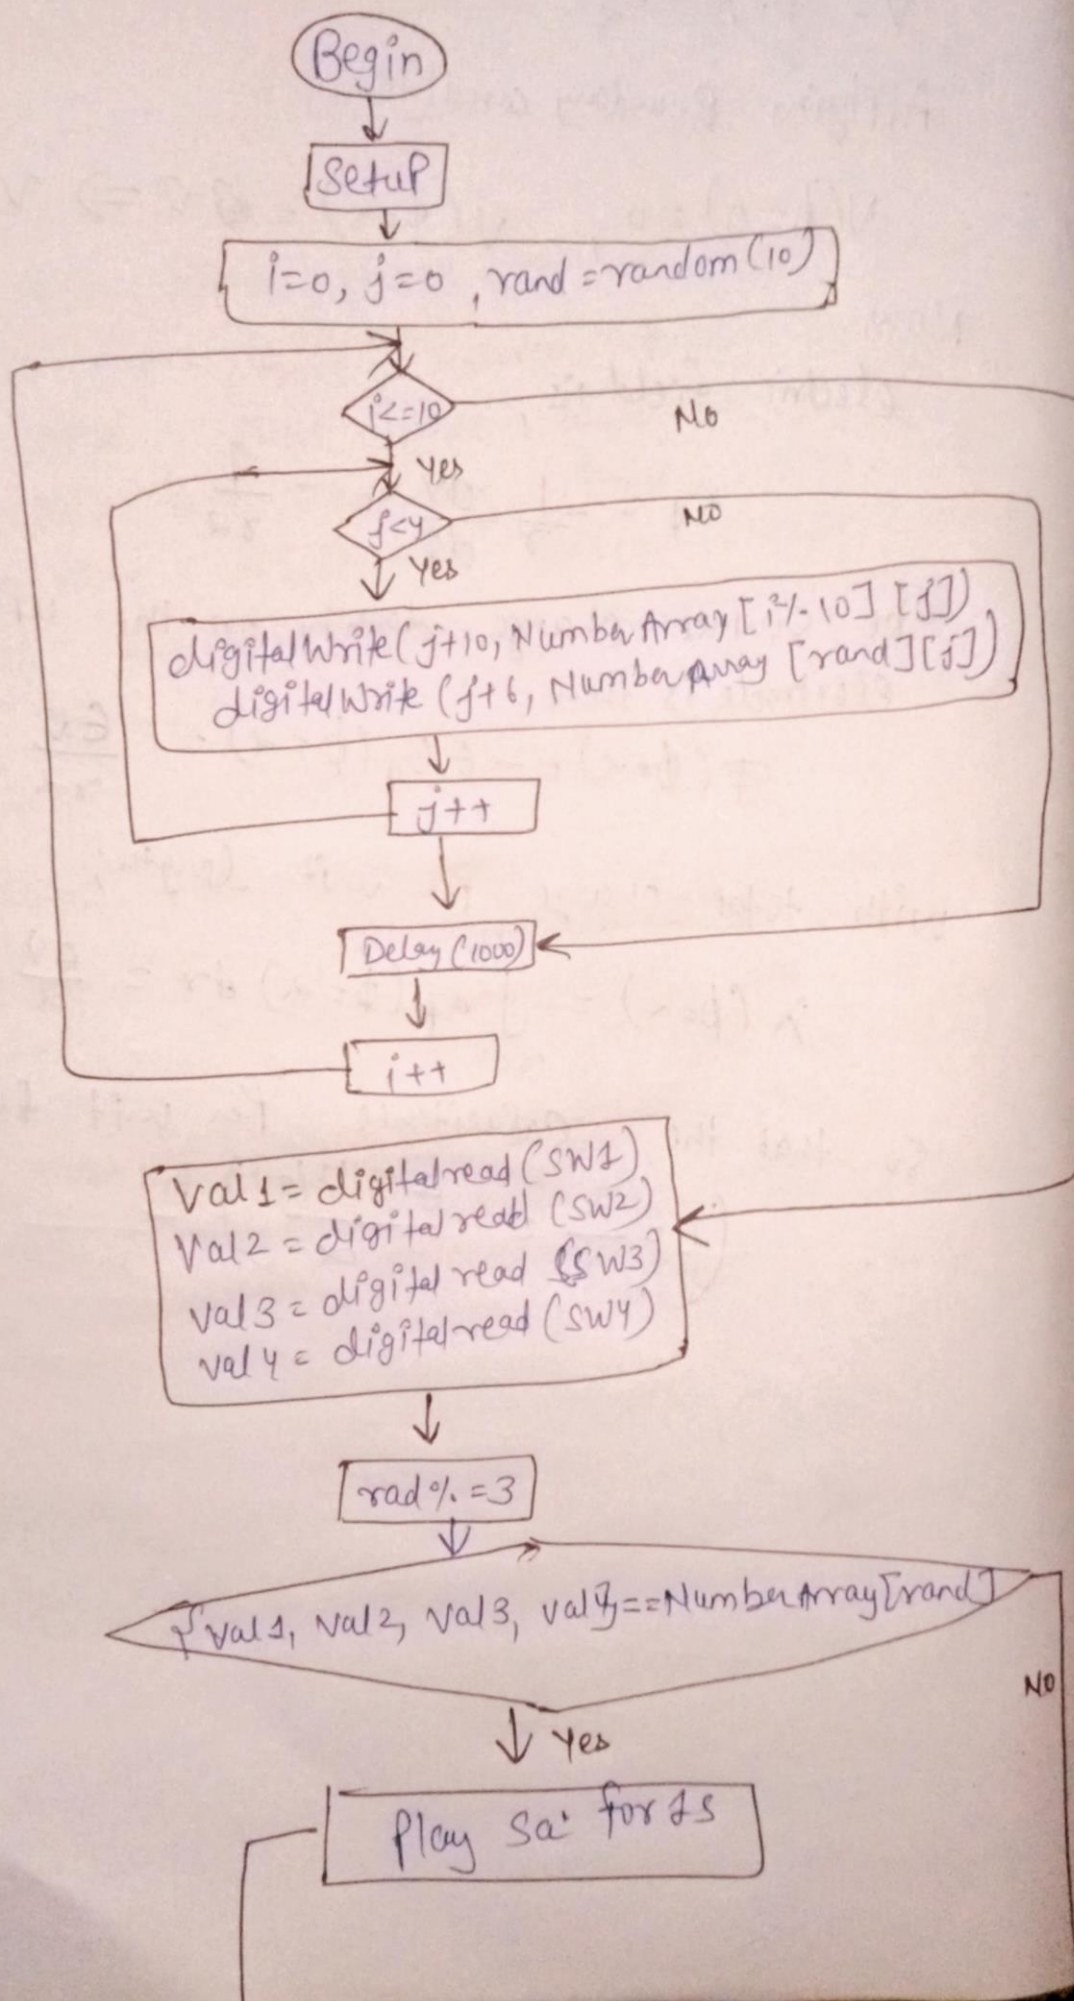 Begin
Setup
i=0, j=0, rand=random(10)
i<=10
No
Yes
j<4
No
Yes
digitalWrite(j+10, NumberArray[i%10][j])
digitalWrite(j+6, NumberArray[rand][j])
j++
Delay(1000)
i++
Val1=digitalread(SW1)
Val2=digitalread(SW2)
val3=digitalread(SW3)
val4=digitalread(SW4)
rad%=3
{val1, val2, val3, val4}==NumberArray[rand]
No
Yes
Play Sa' for 1s